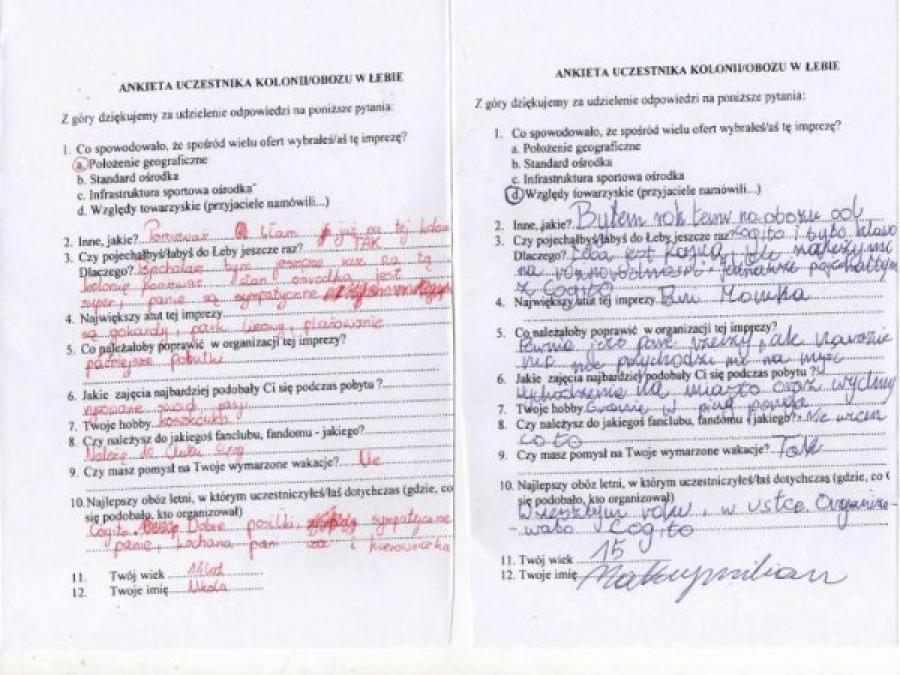 ANKIETA UCZESTNIKA KOLONII/OBOZU W ŁEBIE
Z góry dziękujemy za udzielenie odpowiedzi na poniższe pytania:
1. Co spowodowało, że spośród wielu ofert wybrałeś/aś tę imprezę?
a. Położenie geograficzne
b. Standard ośrodka
c. Infrastruktura sportowa ośrodka
d. Względy towarzyskie (przyjaciele namówili...)
2. Inne, jakie? Ponieważ byłam już na tej
3. Czy pojechałbyś/łabyś do Łeby jeszcze raz? TAK
Dlaczego? jeszcze raz na tą
kolonię ponieważ stan ośrodka jest
super, panie są sympatyczne
4. Największy atut tej imprezy
są gokardy, park linowy, plażowanie
5. Co należałoby poprawić w organizacji tej imprezy?
późniejsze pobutki
6. Jakie zajęcia najbardziej podobały Ci się podczas pobytu?
pasji
7. Twoje hobby
8. Czy należysz do jakiegoś fanclubu, fandomu - jakiego?
Należę do Clubu
9. Czy masz pomysł na Twoje wymarzone wakacje?
10. Najlepszy obóz letni, w którym uczestniczyłeś/łaś dotychczas (gdzie, co
się podobało, kto organizował)
Cogito Dobre posiłki, sympatyczne
panie, kochana pani i kierowniczka
11. Twój wiek 11 lat
12. Twoje imię Nikola
ANKIETA UCZESTNIKA KOLONII/OBOZU W ŁEBIE
Z góry dziękujemy za udzielenie odpowiedzi na poniższe pytania:
1. Co spowodowało, że spośród wielu ofert wybrałeś/aś tę imprezę?
a. Położenie geograficzne
b. Standard ośrodka
c. Infrastruktura sportowa ośrodka
d. Względy towarzyskie (przyjaciele namówili...)
2. Inne, jakie? Byłem rok temu na obozu od
3. Czy pojechałbyś/łabyś do Łeby jeszcze raz? Cogito i było
Dlaczego? Łeba jest fajna, ale
na
z Cogito
4. Największy atut tej imprezy Pani Monika
5. Co należałoby poprawić w organizacji tej imprezy?
Pewnie parę rzeczy, ale narazie
nic nie przychodzi mi na myśl
6. Jakie zajęcia najbardziej podobały Ci się podczas pobytu? W
wychodzenie na miasto oraz
7. Twoje hobby Granie w
8. Czy należysz do jakiegoś fanclubu, fandomu (jakiego)? Nie wiem
co to
9. Czy masz pomysł na Twoje wymarzone wakacje? Tak
10. Najlepszy obóz letni, w którym uczestniczyłeś/łaś dotychczas (gdzie, co
się podobało, kto organizował)
W zeszłym roku, w Ustce. Organizo-
-wało Cogito
11. Twój wiek 15
12. Twoje imię Maksymilian